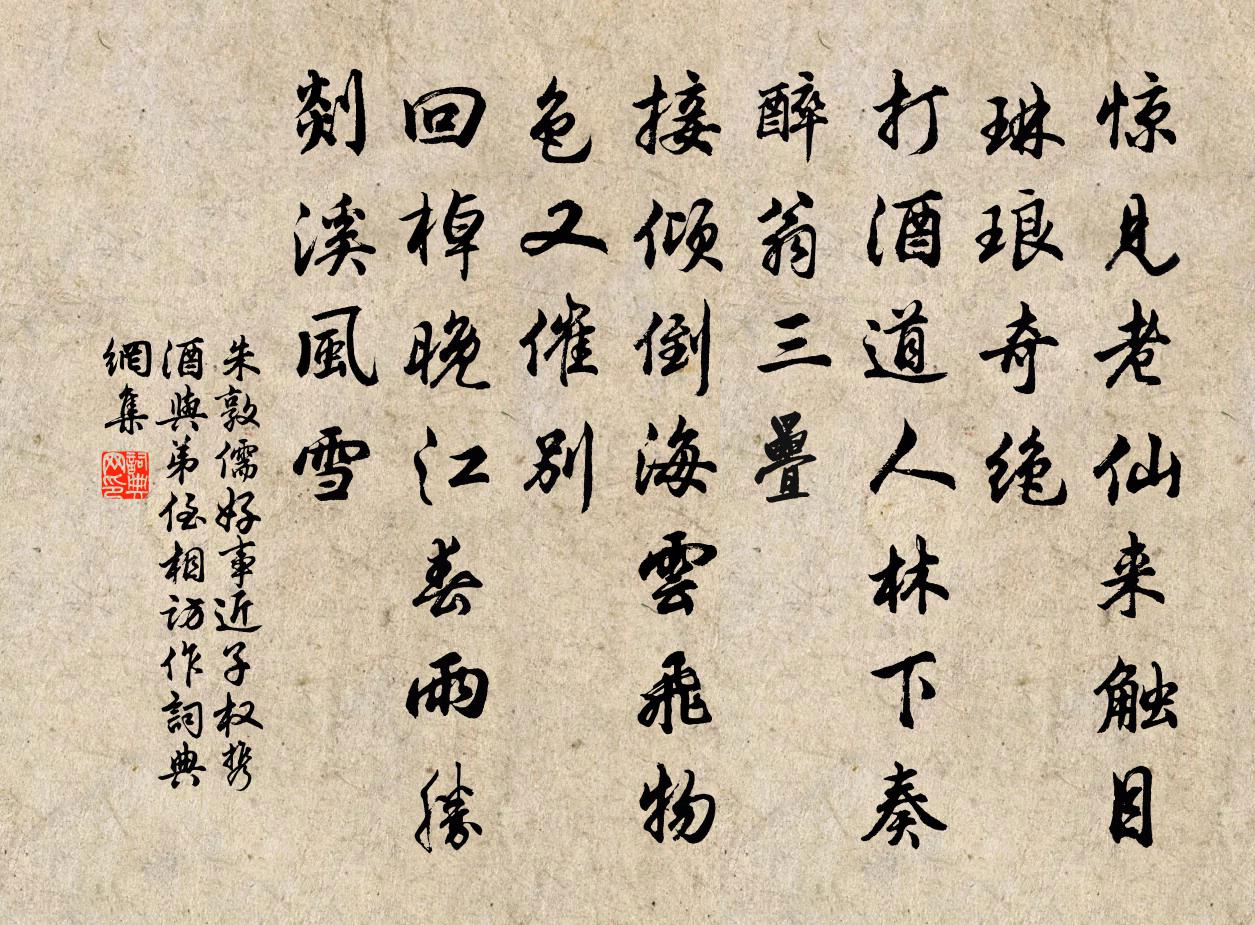 惊見老仙来触目
琳琅奇绝
打酒道人林下奏
醉翁三疊
接倾倒海雲飛物
色又催别
回棹晚江春雨勝
剡溪風雪
朱敦儒好事近子权携
酒與弟侄相访作詞典
網集
詞典网印